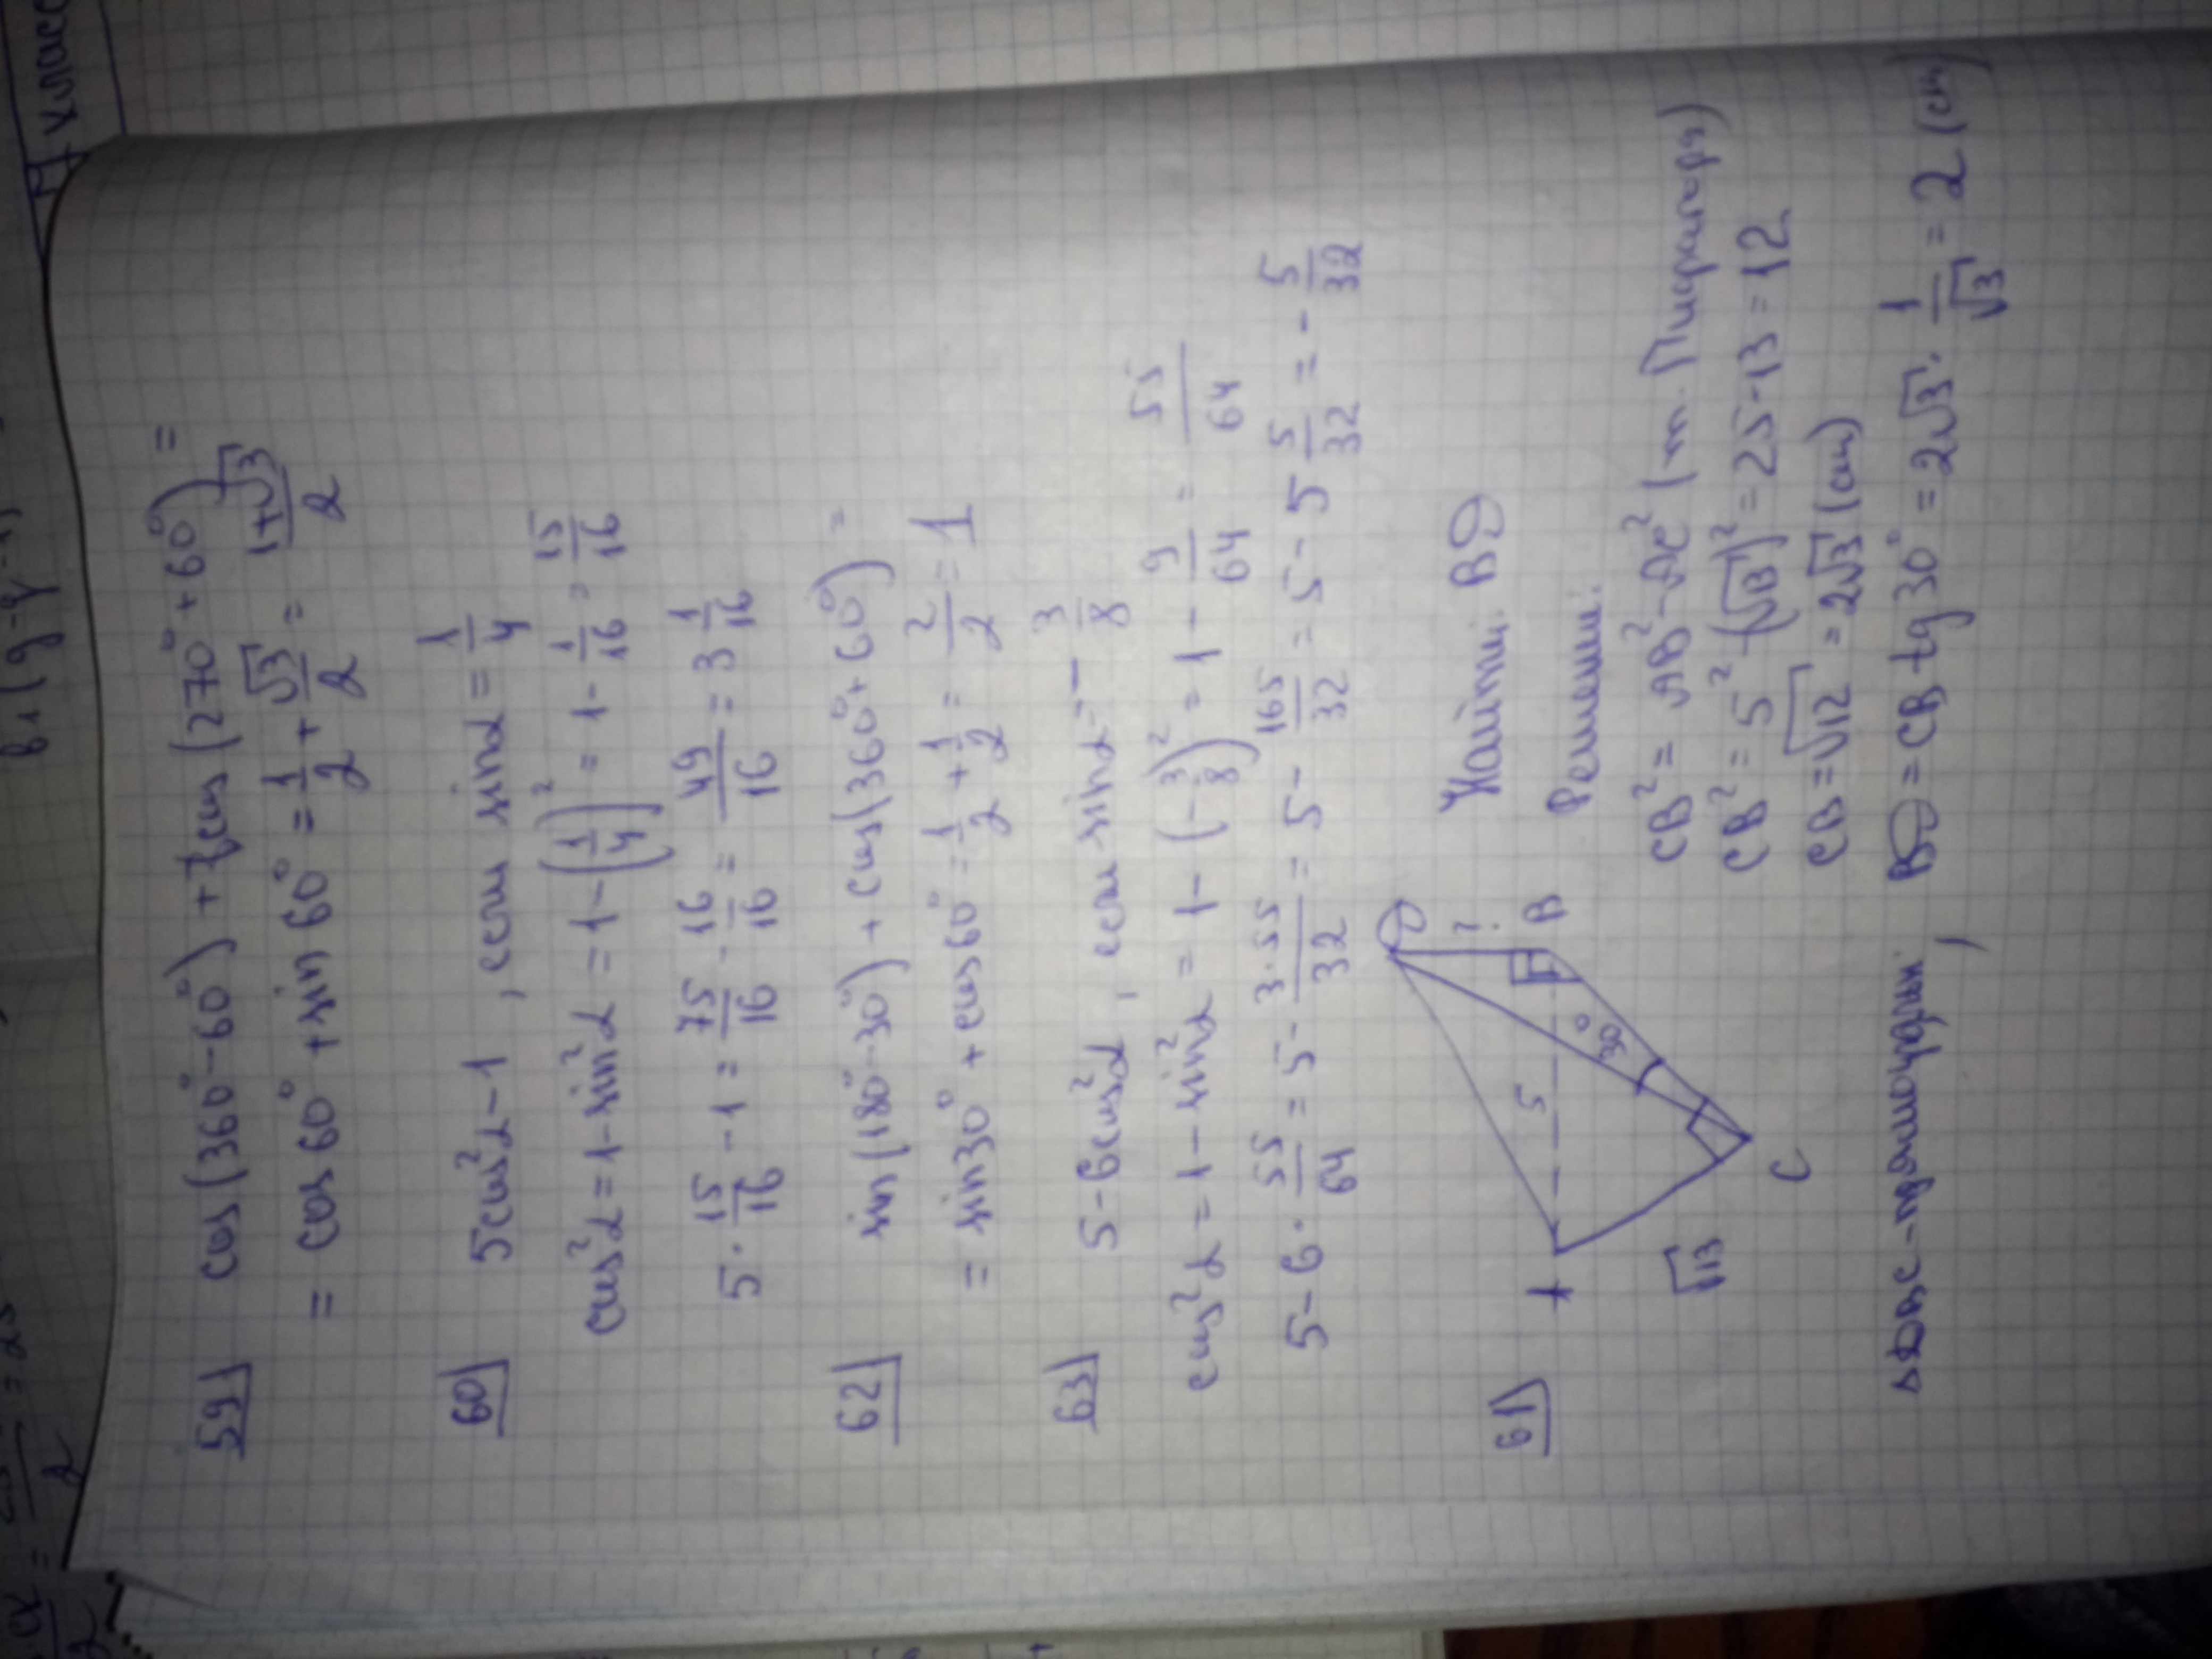 класс
59) cos(360°-60°) + cos(270°+60°) =
= cos60° + sin60° = 1/2 + √3/2 = (1+√3)/2
60) 5cos²α-1, если sinα = 1/4
cos²α = 1-sin²α = 1-(1/4)² = 1-1/16 = 15/16
5·15/16 - 1 = 75/16 - 16/16 = 49/16 = 3 1/16
62) sin(180°-30°) + cos(360°+60°) =
= sin30° + cos60° = 1/2 + 1/2 = 2/2 = 1
63) 5-6cos²α, если sinα = -3/8
cos²α = 1-sin²α = 1-(-3/8)² = 1-9/64 = 55/64
5-6·55/64 = 5-3·55/32 = 5-165/32 = 5-5 5/32 = -5/32
61) Найти: BD
Решение:
CB² = AB²-AC² (т. Пифагора)
CB² = 5²-(√13)² = 25-13 = 12
CB = √12 = 2√3 (см)
A
5
√13
C
30°
B
?
D
ΔDBC - прямоугольн, BD = CB tg30° = 2√3·1/√3 = 2 (см)